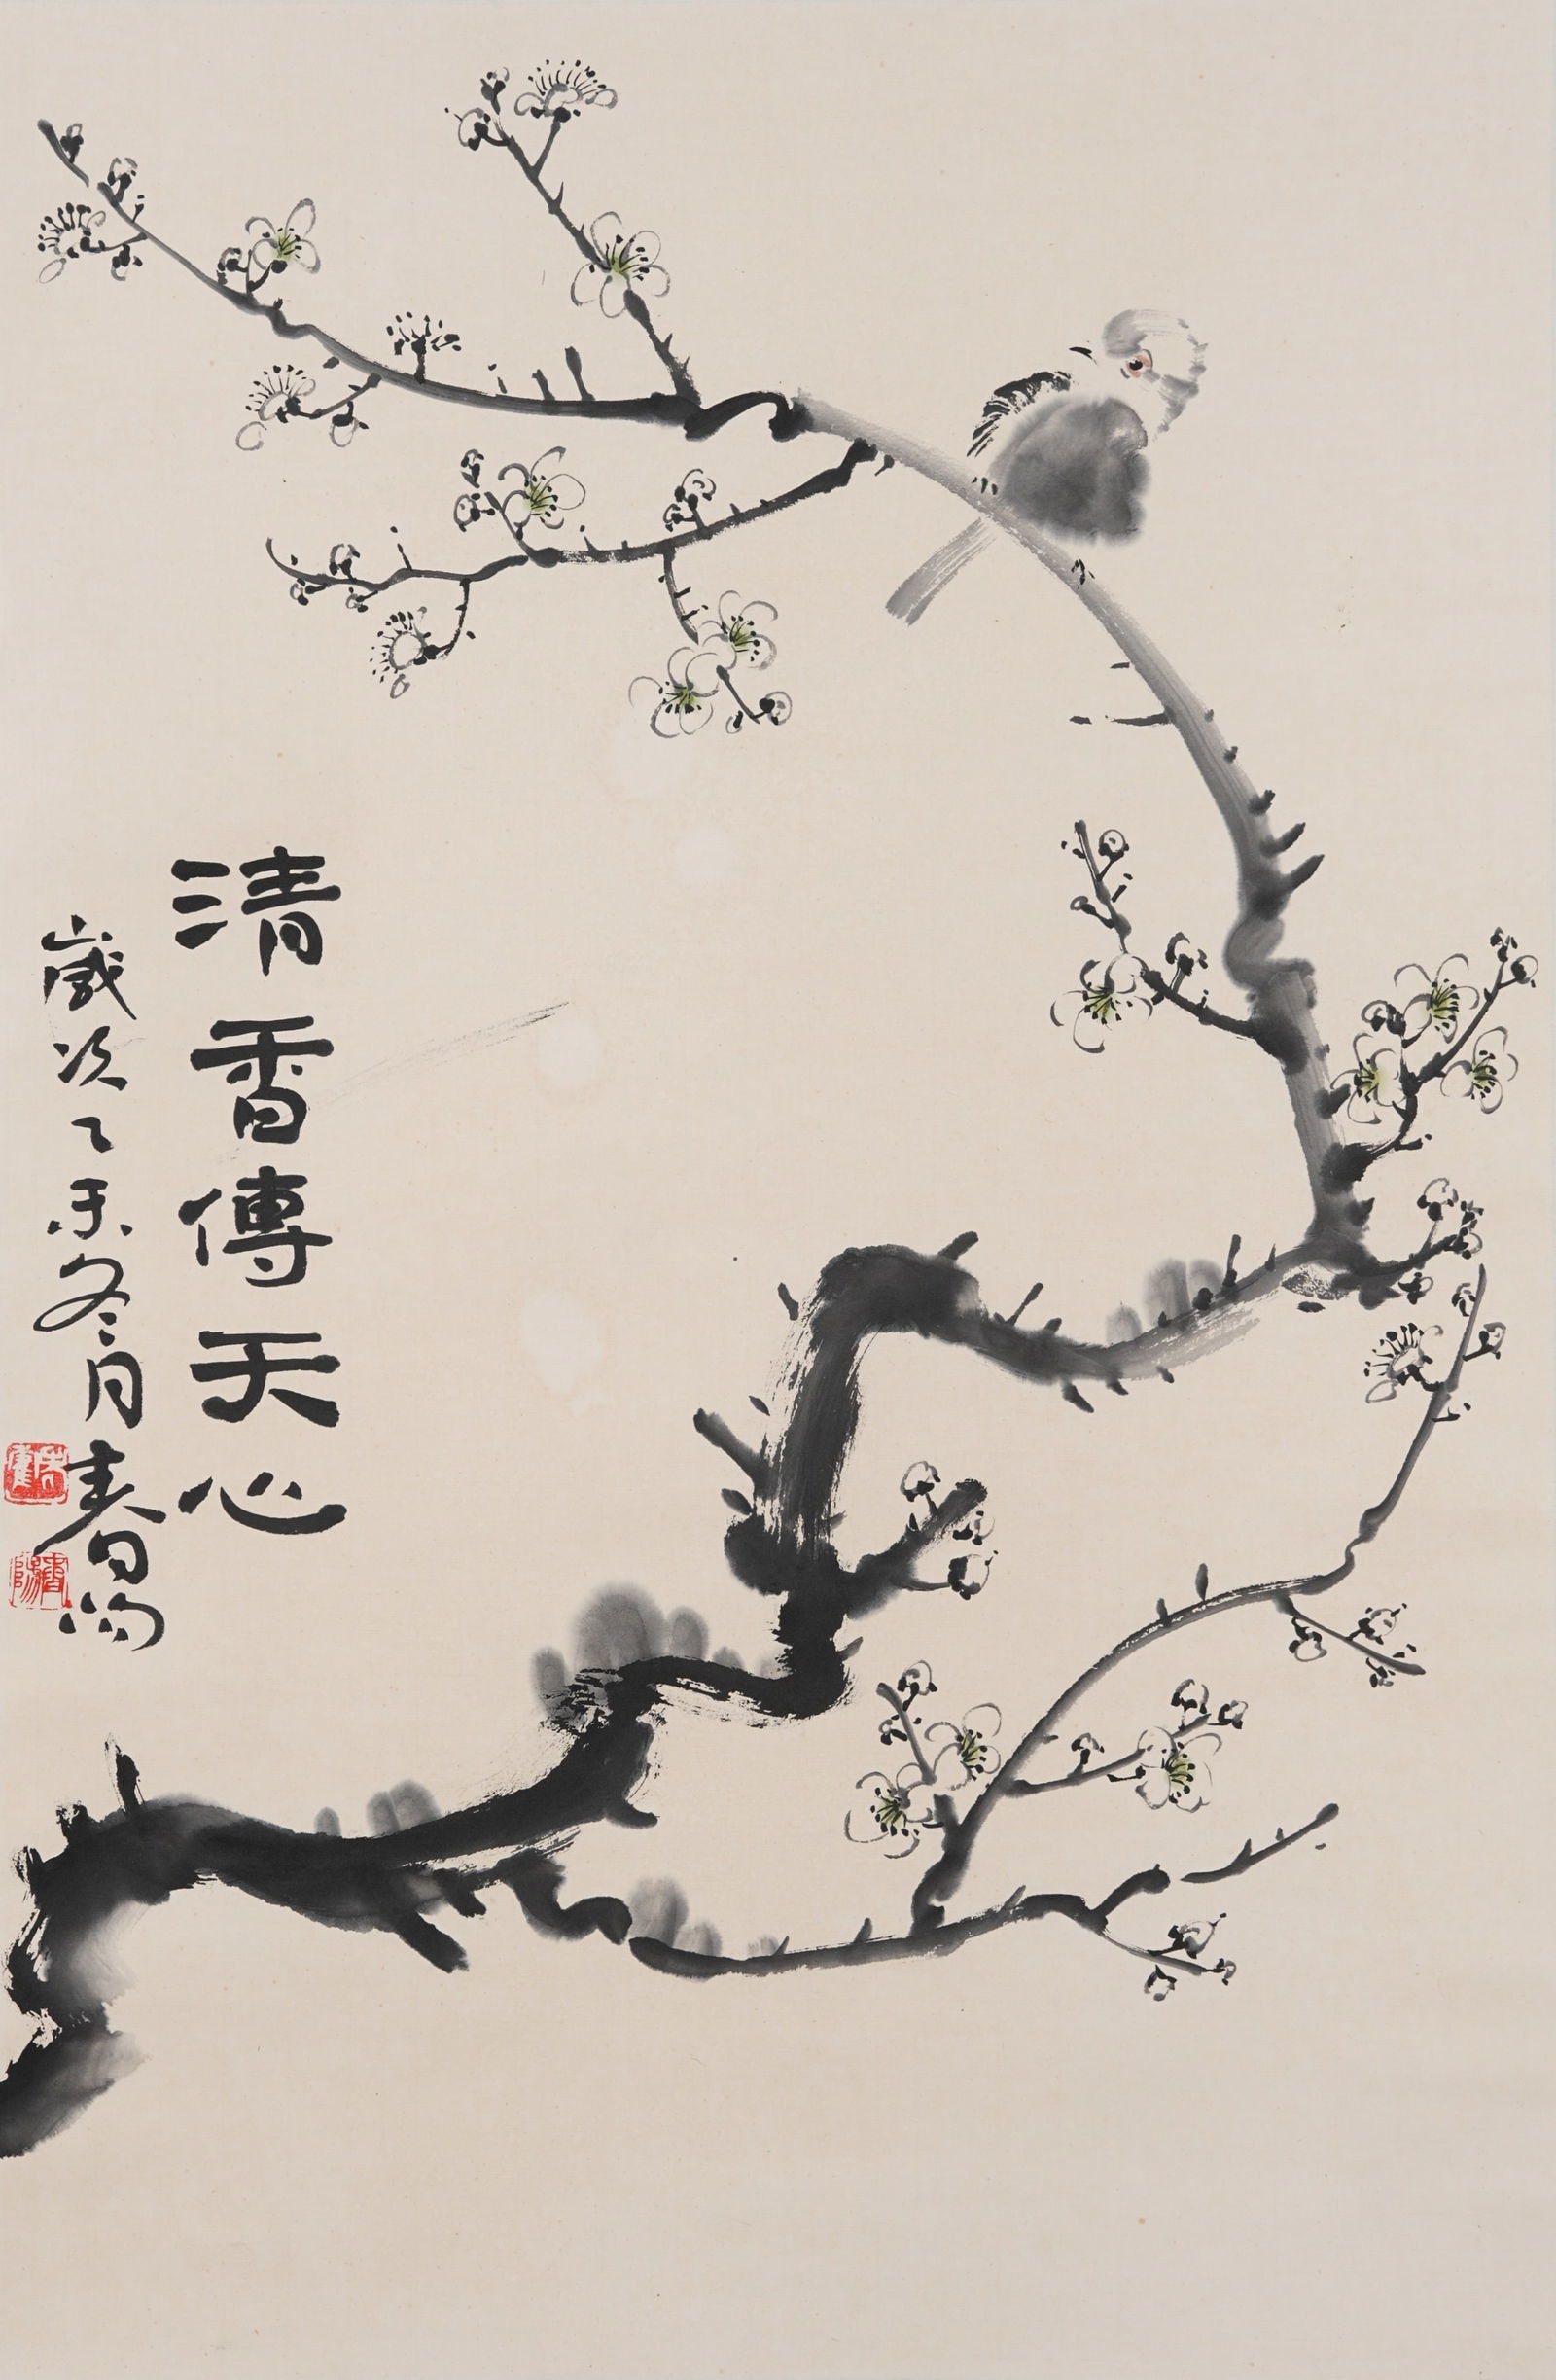 清香傳天心
歲次乙未冬月春陽